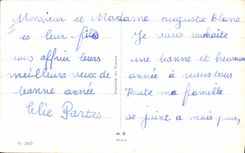 Monsieur et Madame auguste Blanc
et leur fils
vous affrir leurs
meilleurs veux de
bonne année
Je vous souhaite
une bonne et heureuse
année à vous tous
Toute ma famille
se joint a mais pour
Imprimé en France
M. D.
PARIS